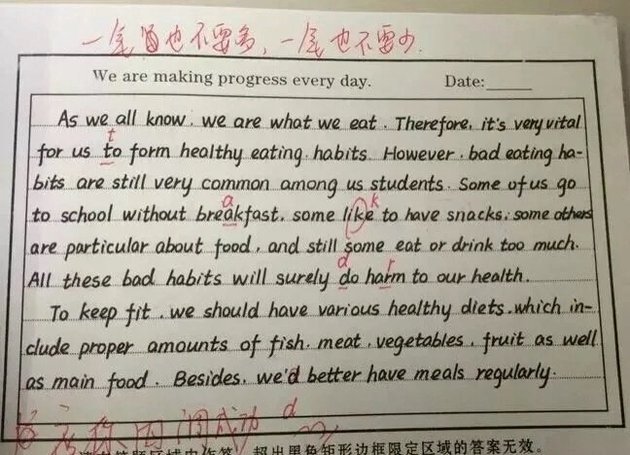 一尾 也不要多，一尾也不要少.
We are making progress every day. Date:
As we all know, we are what we eat. Therefore, it's very vital
t
for us to form healthy eating habits. However, bad eating ha-
bits are still very common among us students. Some of us go
a k
to school without breakfast, some like to have snacks, some others
are particular about food, and still some eat or drink too much.
d r
All these bad habits will surely do harm to our health.
To keep fit, we should have various healthy diets, which in-
clude proper amounts of fish, meat, vegetables, fruit as well
as main food. Besides, we'd better have meals regularly.
成功 d
答题区域内作答，超出黑色矩形边框限定区域的答案无效。